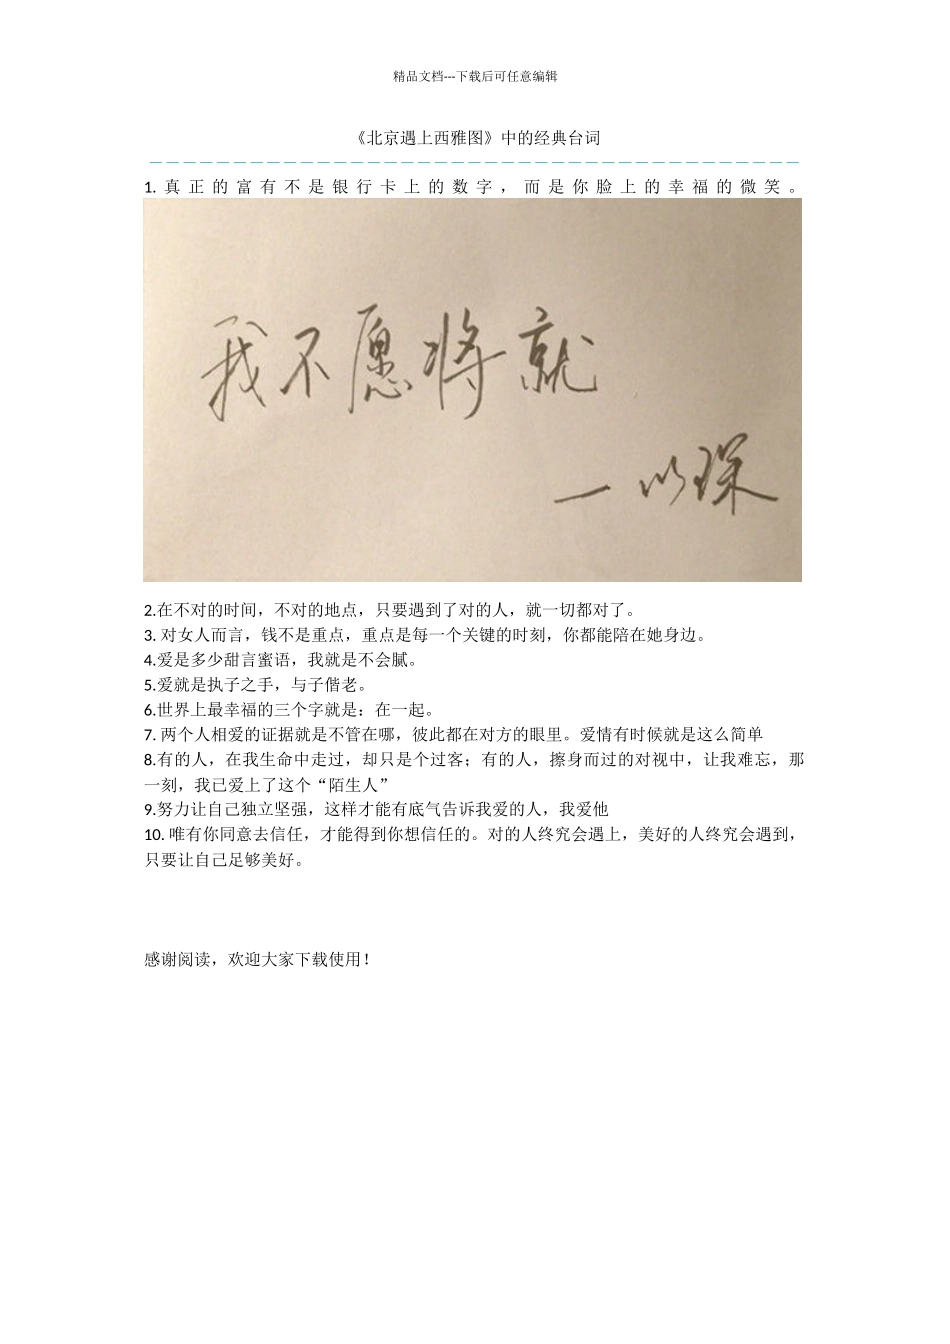 精品文档---下载后可任意编辑
《北京遇上西雅图》中的经典台词
1. 真正的富有不是银行卡上的数字，而是你脸上的幸福的微笑。
我不愿将就
一以琛
2.在不对的时间，不对的地点，只要遇到了对的人，就一切都对了。
3. 对女人而言，钱不是重点，重点是每一个关键的时刻，你都能陪在她身边。
4.爱是多少甜言蜜语，我就是不会腻。
5.爱就是执子之手，与子偕老。
6.世界上最幸福的三个字就是：在一起。
7. 两个人相爱的证据就是不管在哪，彼此都在对方的眼里。爱情有时候就是这么简单
8.有的人，在我生命中走过，却只是个过客；有的人，擦身而过的对视中，让我难忘，那
一刻，我已爱上了这个“陌生人”
9.努力让自己独立坚强，这样才能有底气告诉我爱的人，我爱他
10. 唯有你同意去信任，才能得到你想信任的。对的人终究会遇上，美好的人终究会遇到，
只要让自己足够美好。
感谢阅读，欢迎大家下载使用！